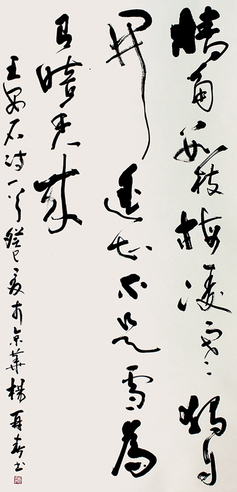 墙角数枝梅凌寒独自
开遥知不是雪为
有暗香来
王安石诗一首癸巳夏于京华杨再春书